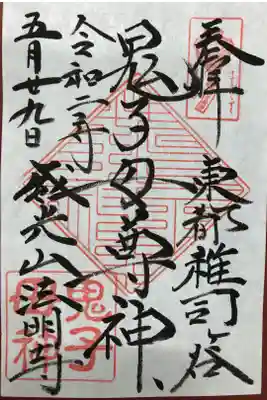 奉拝
東都雑司ヶ谷
鬼子母尊神
令和二年
五月廿九日
威光山法明寺
鬼子
母神